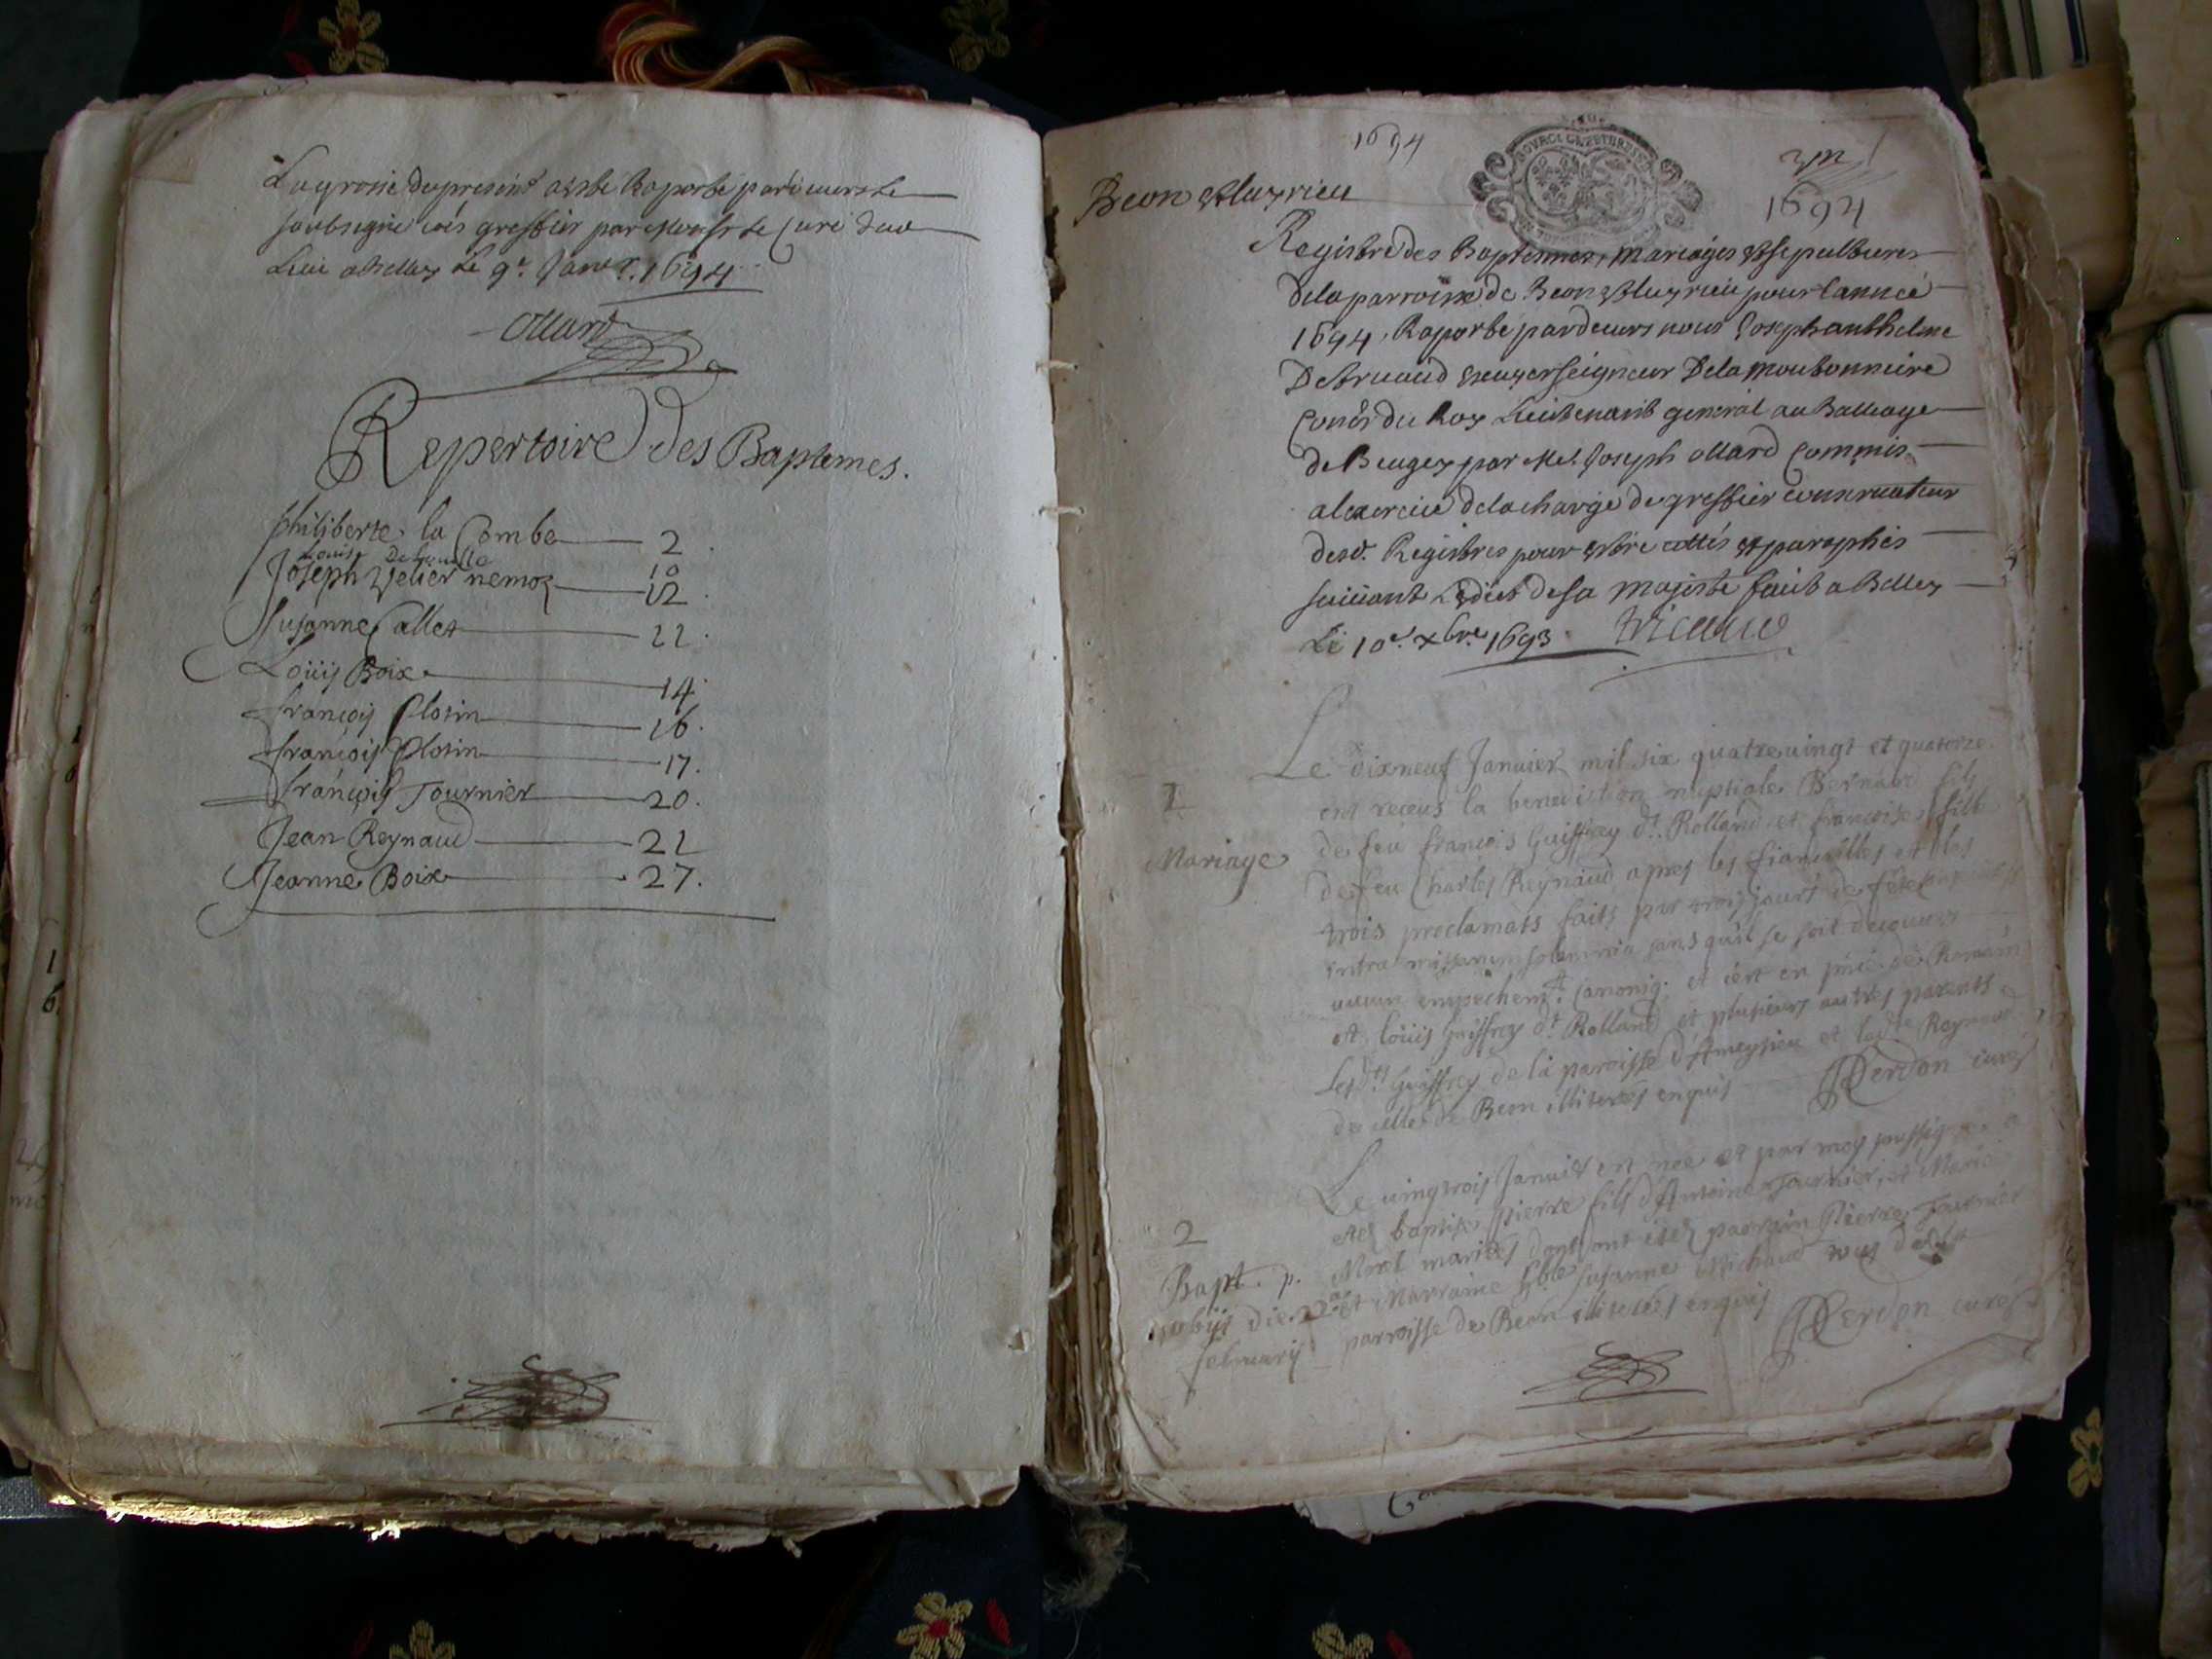 La grosse du present a este Raporté par devers le
soubsigné coes greffier par Monsr le Curé dud
Lieu a Belley Le 9e Janvr. 1694
Ollard
Repertoire des Baptemes.
philiberte la Combe 2.
Louise 10
Joseph velier nemoz 12.
Susanne Callet 11.
Loüis Boix 14.
françois Plosin 16.
françois Plosin 17.
françois Tournier 20.
Jean Reynaud 21
Jeanne Boix 27.
1694
1694
Beon & Luyrieu
Registre des Baptesmes, mariages & sepultures
de la parroisse de Beon & Luyrieu pour l'année
1694, Raporté pardevers nous Joseph anthelme
escuyer seigneur De la moutonniere
Coner du Roy Lieutenant general au Balliage
de Beugey par Me Joseph ollard Commis
a l'exercice de la charge de greffier conservateur
desd. Registres pour estre cottés & paraphés
suivant L'Edict de sa majesté fait a Belley
Le 10e xbre 1693.
Le dixneuf Januier mil six quatreuingt et quatorze
ont receus la benediction nuptiale Bernard fils
de feu françois Guiffrey dt. Rolland et françoise fille
de feu Charles Reynaud apres les fiancailles et les
trois proclamats faits par trois jours de fête
intra missarum solemnia sans qu'il se soit decouuert
aucun empechemt. Canoniq. et c'est en pnce de Romain
et loüis Guiffrey dt Rolland et plusieurs autres parents
Lesdts Guiffrey de la paroisse d'Ameysieu et ladte Reynaud
de celle de Beon illiterés enquis Perdon curé
1
Mariage
Le uingtrois Januier est née et par moy soussigné a
eté baptisé pierre fils d'Antoine Tournier, et Marie
Morel mariés dont ont étéz parrain Pierre Tournier
et Marraine hble Susanne Michaud tous de la
parroisse de Beon illiterés enquis Perdon curé
2
Bapt. p.
obijt die 22a
februarij